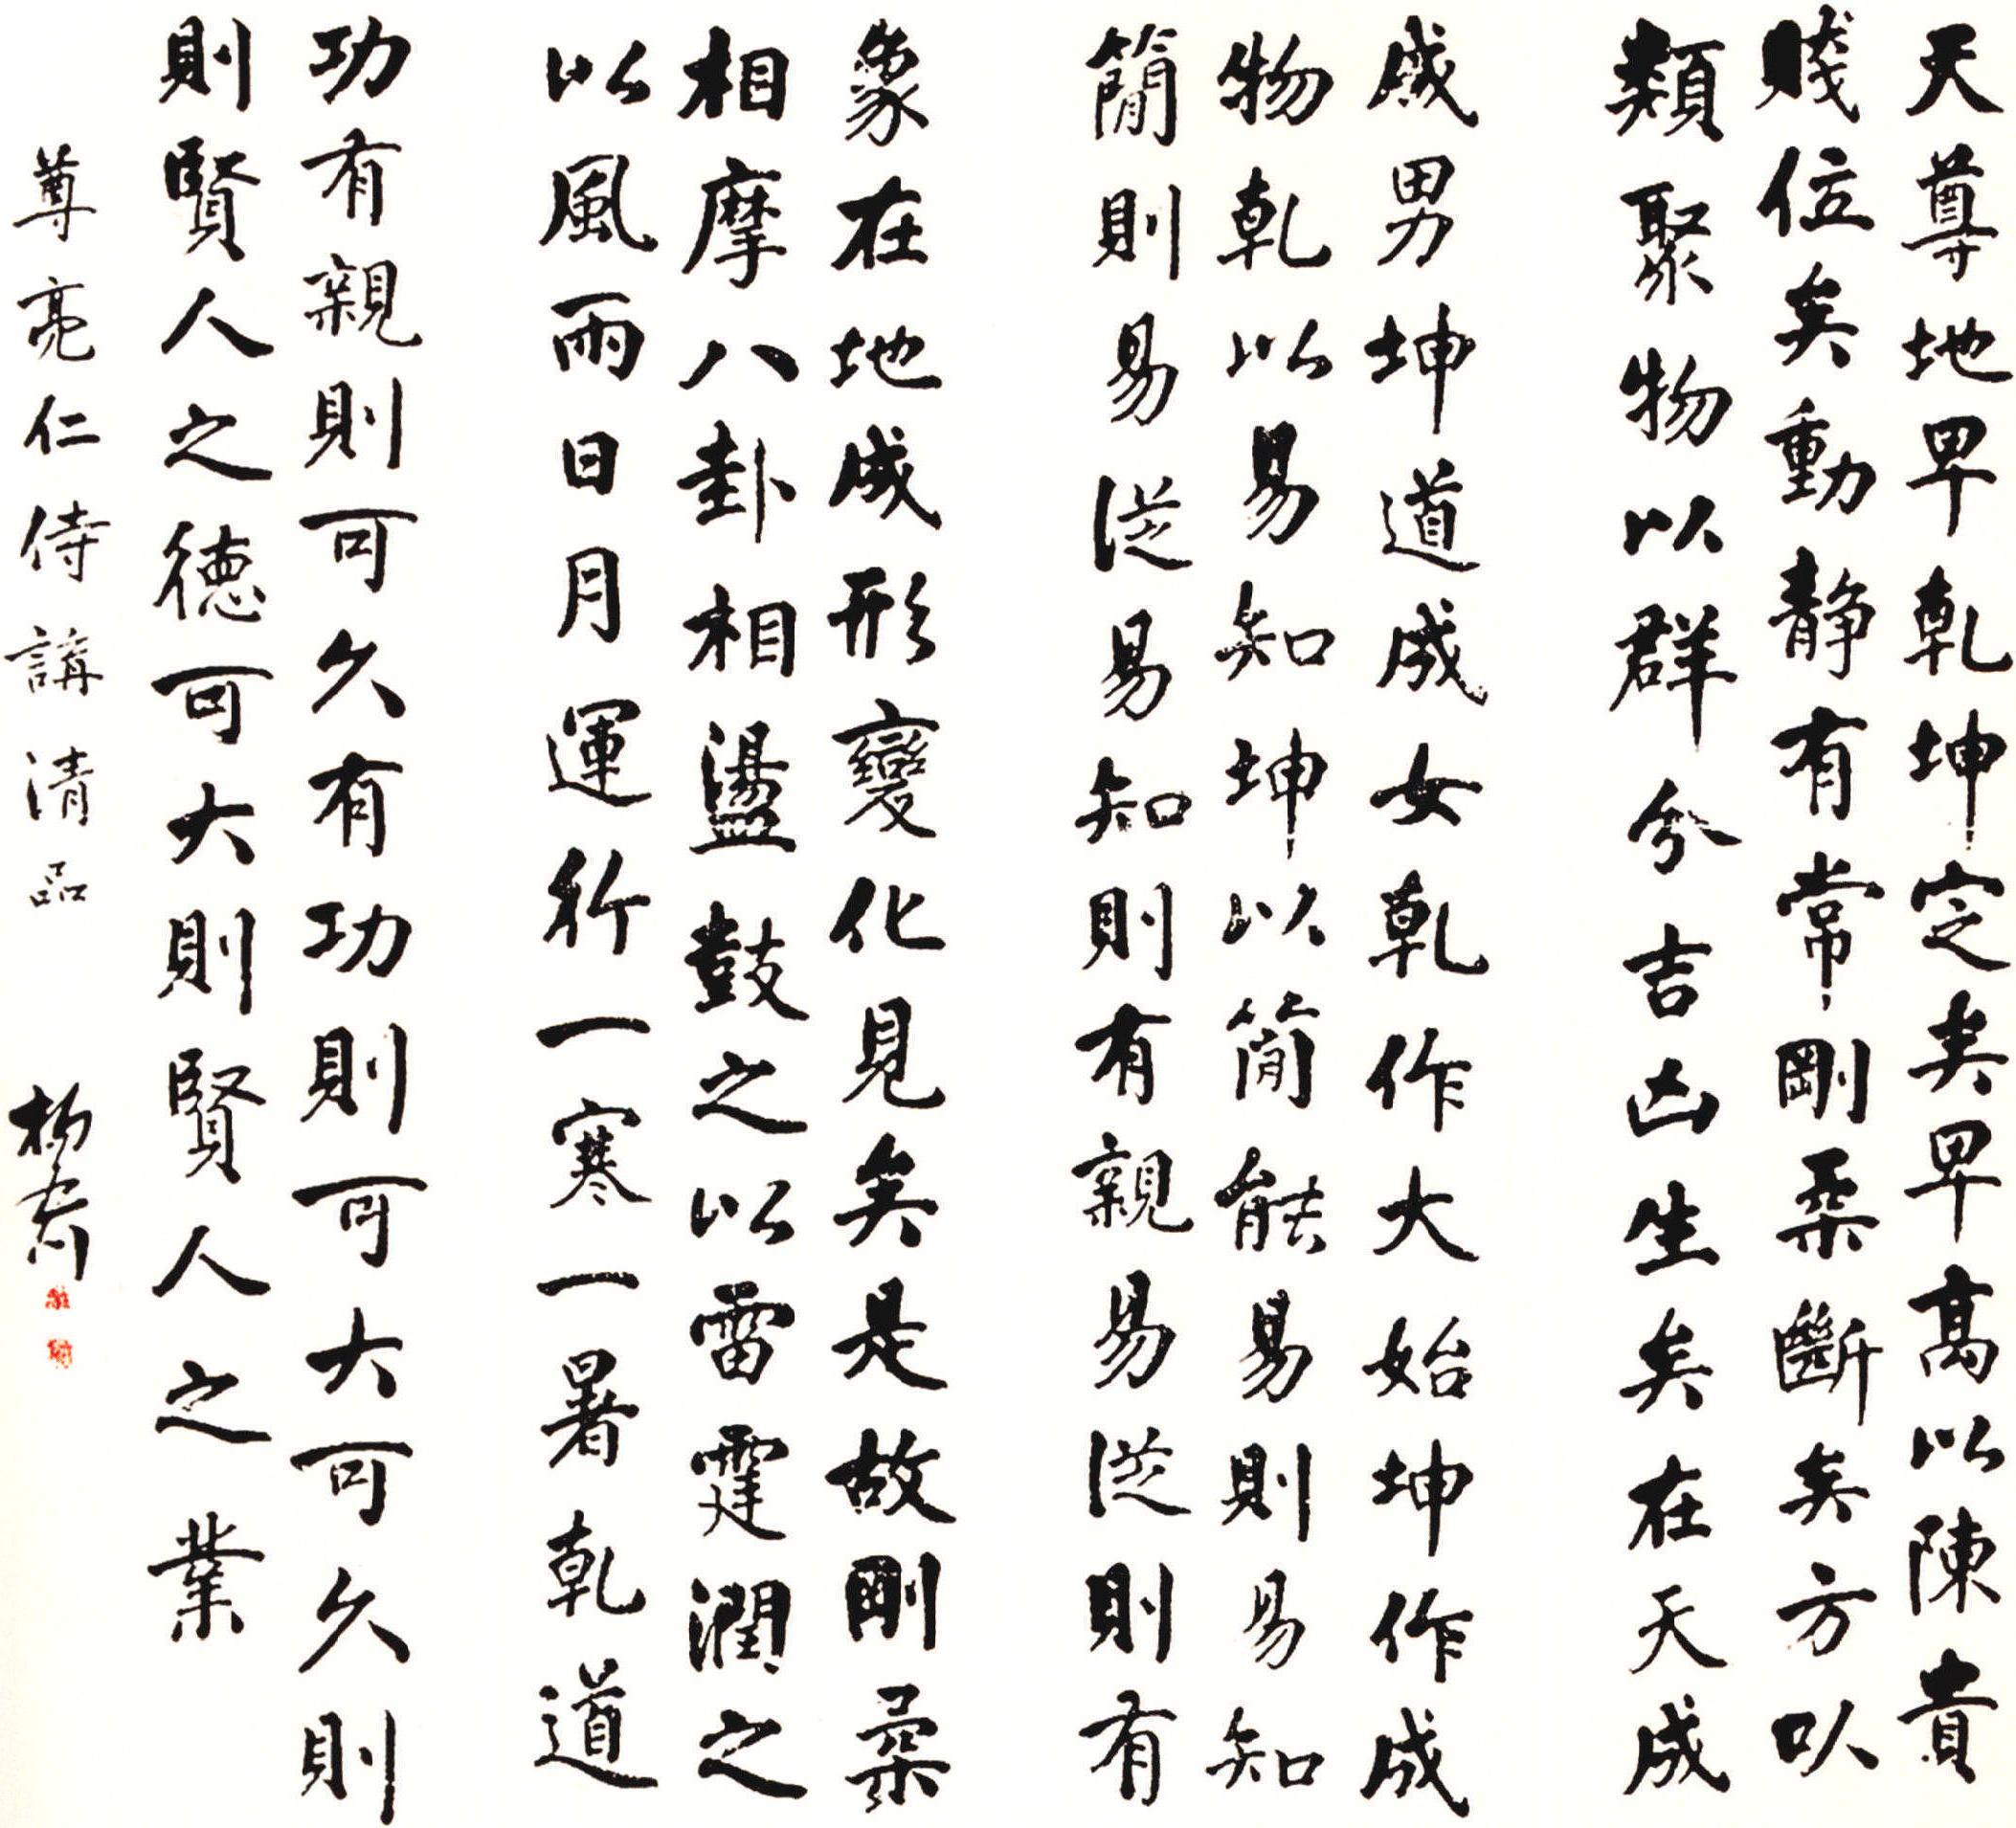 天尊地卑乾坤定矣卑高以陳貴
賤位矣動靜有常剛柔斷矣方以
類聚物以群分吉凶生矣在天成
成男坤道成女乾作大始坤作成
物乾以易知坤以簡能易則易知
簡則易從易知則有親易從則有
象在地成形變化見矣是故剛柔
相摩八卦相盪鼓之以雷霆潤之
以風雨日月運行一寒一暑乾道
功有親則可久有功則可大可久則
則賢人之德可大則賢人之業
尊亮仁侍講清品 楊